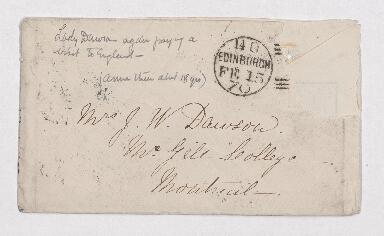 Lady Dawson again paying a
visit to England —
(Anna then abt 18 yrs)
4 G
EDINBURGH
FE 15
70
Mrs J. W. Dawson.
Mc Gill College
Montreal —